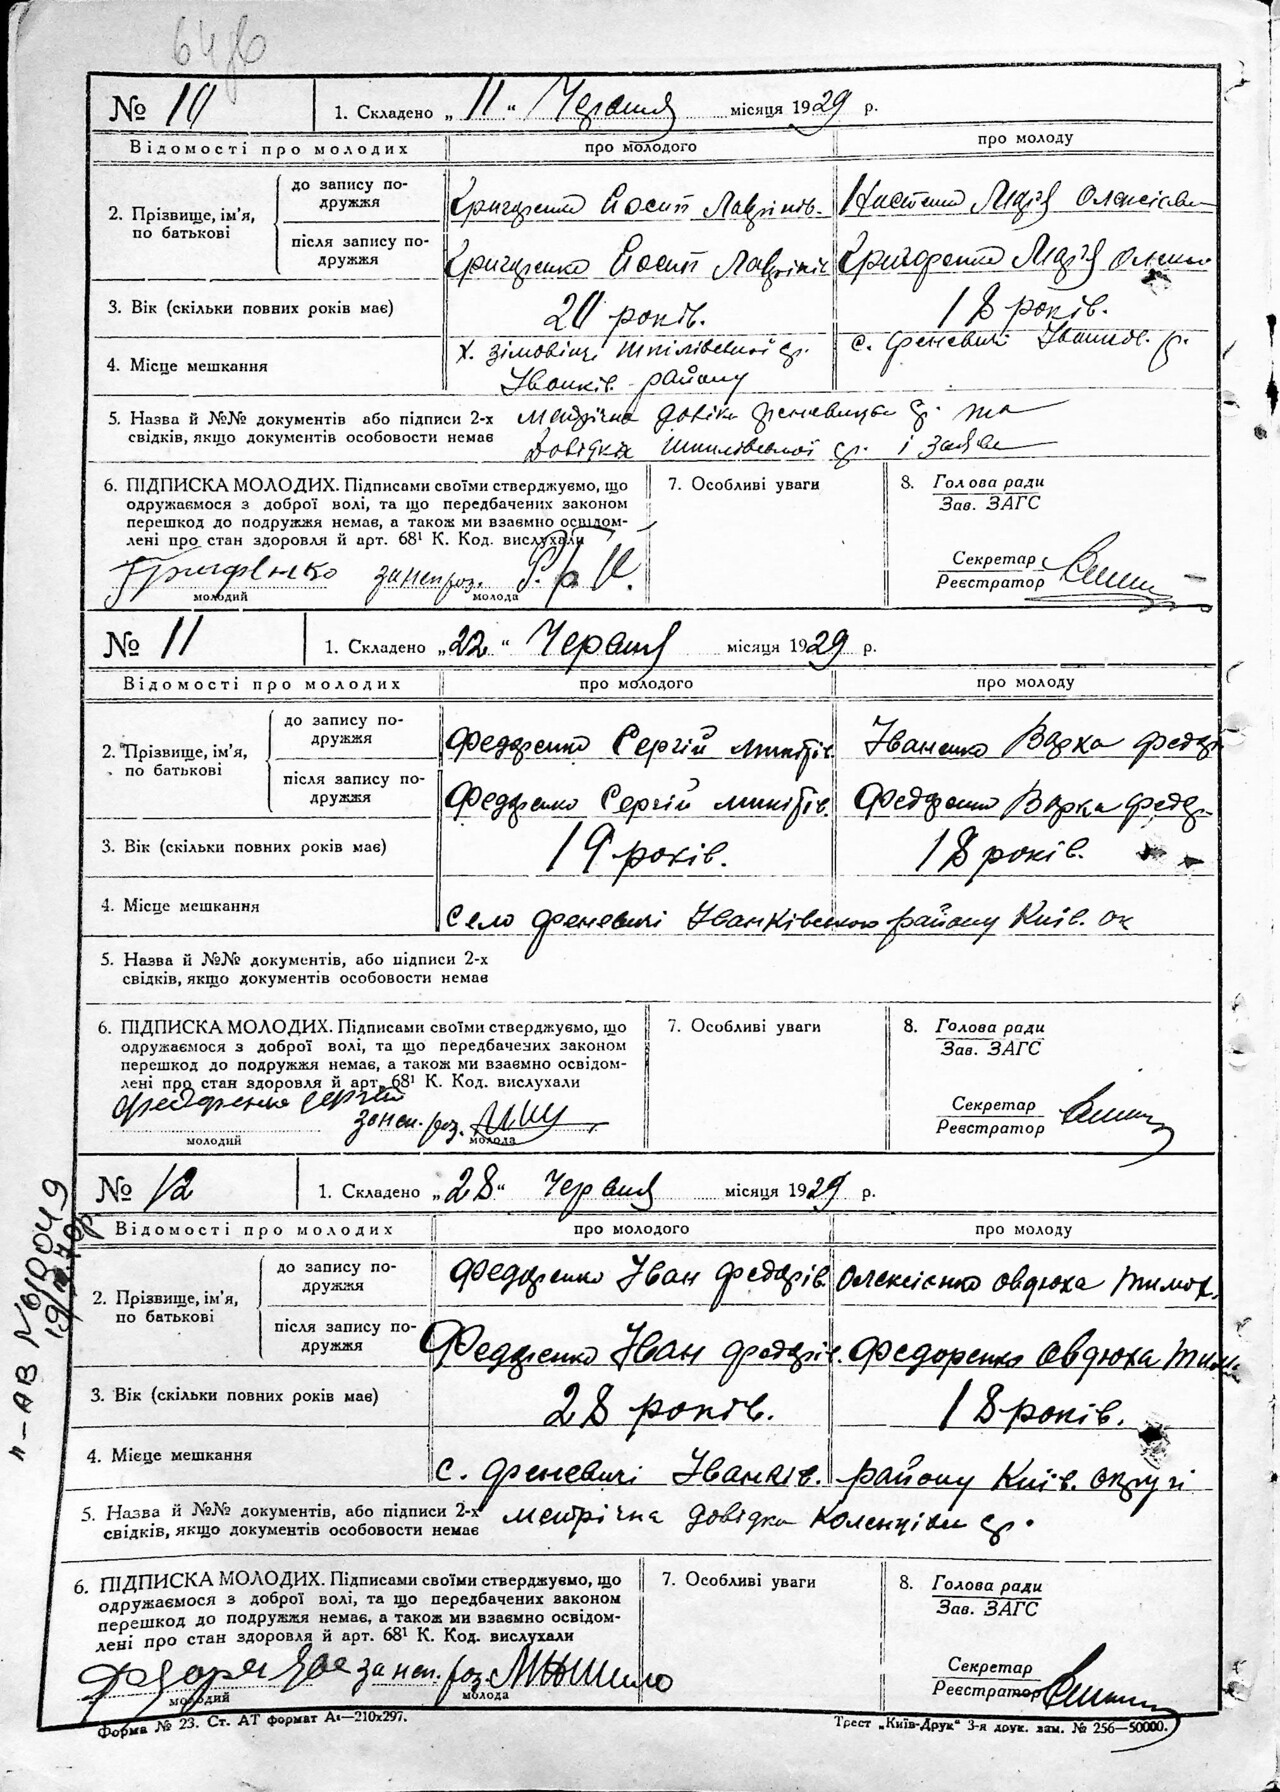 № 10
1. Складено „11“ Червня місяця 1929 р.
Відомості про молодих
про молодого
про молоду
2. Прізвище, ім'я, по батькові
до запису подружжя
Григоренко Йосип Лаврінів.
Марія Олексієвн
після запису подружжя
Григоренко Йосип Лаврінів
Григоренко Марія Олекс
3. Вік (скільки повних років має)
20 років.
18 років.
4. Місце мешкання
х. Зімовищі Шпілівської ср.
Іванків. району
с. Феневичі Іванків. р.
5. Назва й №№ документів або підписи 2-х
свідків, якщо документів особовости немає
метрічна довідка Феневицьк ср. та
довідка Шпилівської ср. і заяви
6. ПІДПИСКА МОЛОДИХ. Підписами своїми стверджуємо, що
одружаємося з доброї волі, та що передбачених законом
перешкод до подружжя немає, а також ми взаємно освідом-
лені про стан здоровля й арт. 68¹ К. Код. вислухали
Григоренко
за неп роз.
молодий
молода
7. Особливі уваги
8. Голова ради
Зав. ЗАГС
Секретар
Реєстратор
№ 11
1. Складено „22“ Червня місяця 1929 р.
Відомості про молодих
про молодого
про молоду
2. Прізвище, ім'я, по батькові
до запису подружжя
Федоренко Сергій Микитів.
Іваненко Варка Федор
після запису подружжя
Федоренко Сергій Микитів.
Федоренко Варка Федор.
3. Вік (скільки повних років має)
19 років.
18 років.
4. Місце мешкання
Село Феневичі Іванківського району Київ. ок
5. Назва й №№ документів, або підписи 2-х
свідків, якщо документів особовости немає
6. ПІДПИСКА МОЛОДИХ. Підписами своїми стверджуємо, що
одружаємося з доброї волі, та що передбачених законом
перешкод до подружжя немає, а також ми взаємно освідом-
лені про стан здоровля й арт. 68¹ К. Код. вислухали
Федоренко Сергій
за неп. роз.
молодий
молода
7. Особливі уваги
8. Голова ради
Зав. ЗАГС
Секретар
Реєстратор
№ 12
1. Складено „28“ Червня місяця 1929 р.
Відомості про молодих
про молодого
про молоду
2. Прізвище, ім'я, по батькові
до запису подружжя
Федоренко Іван Федорів.
Олексієнко Овдюха Тимох.
після запису подружжя
Федоренко Іван Федорів.
Федоренко Овдюха Тим
3. Вік (скільки повних років має)
28 років.
18 років.
4. Місце мешкання
с. Феневичі Іванків. району Київ. округі
5. Назва й №№ документів, або підписи 2-х
свідків, якщо документів особовости немає
метрічна довідка Коленціви ср.
6. ПІДПИСКА МОЛОДИХ. Підписами своїми стверджуємо, що
одружаємося з доброї волі, та що передбачених законом
перешкод до подружжя немає, а також ми взаємно освідом-
лені про стан здоровля й арт. 68¹ К. Код. вислухали
за неп. роз.
молодий
молода
7. Особливі уваги
8. Голова ради
Зав. ЗАГС
Секретар
Реєстратор
Форма № 23. Ст. АТ формат А₁—210х297.
Трест „Київ-Друк“ 3-я друк. зам. № 256—50000.